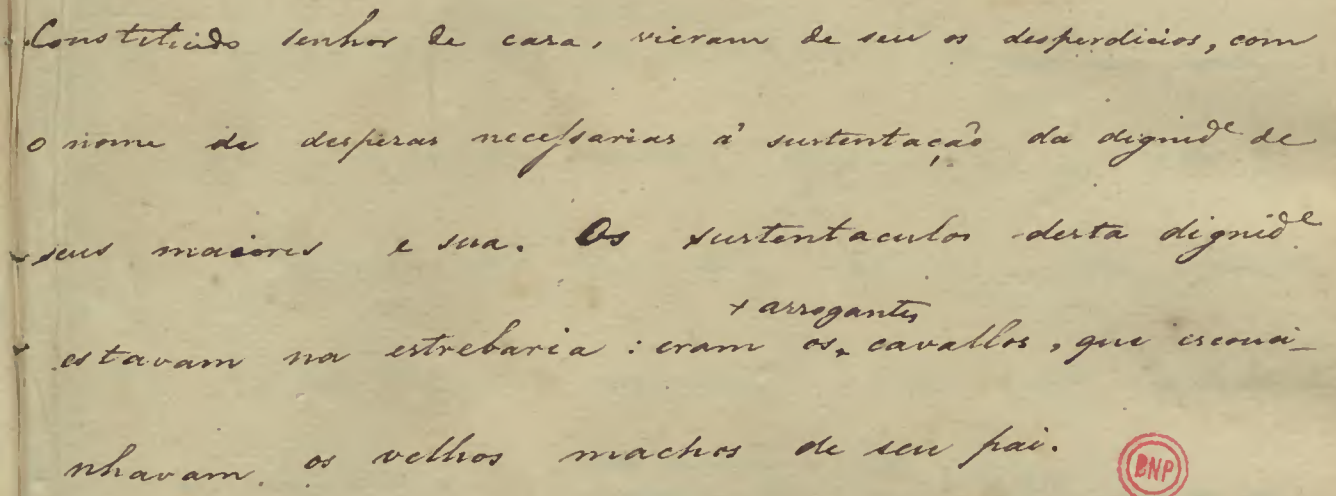 Constituido senhor de casa, vieram de seu os desperdicios, com
o nome de despezas necessarias á sustentação da dignid.e de
seus maiores e sua. Os sustentaculos desta dignid.e
+ arrogantes
estavam na estrebaria : eram os + cavallos, que escouci-
nhavam os velhos machos de seu pai.
BNP